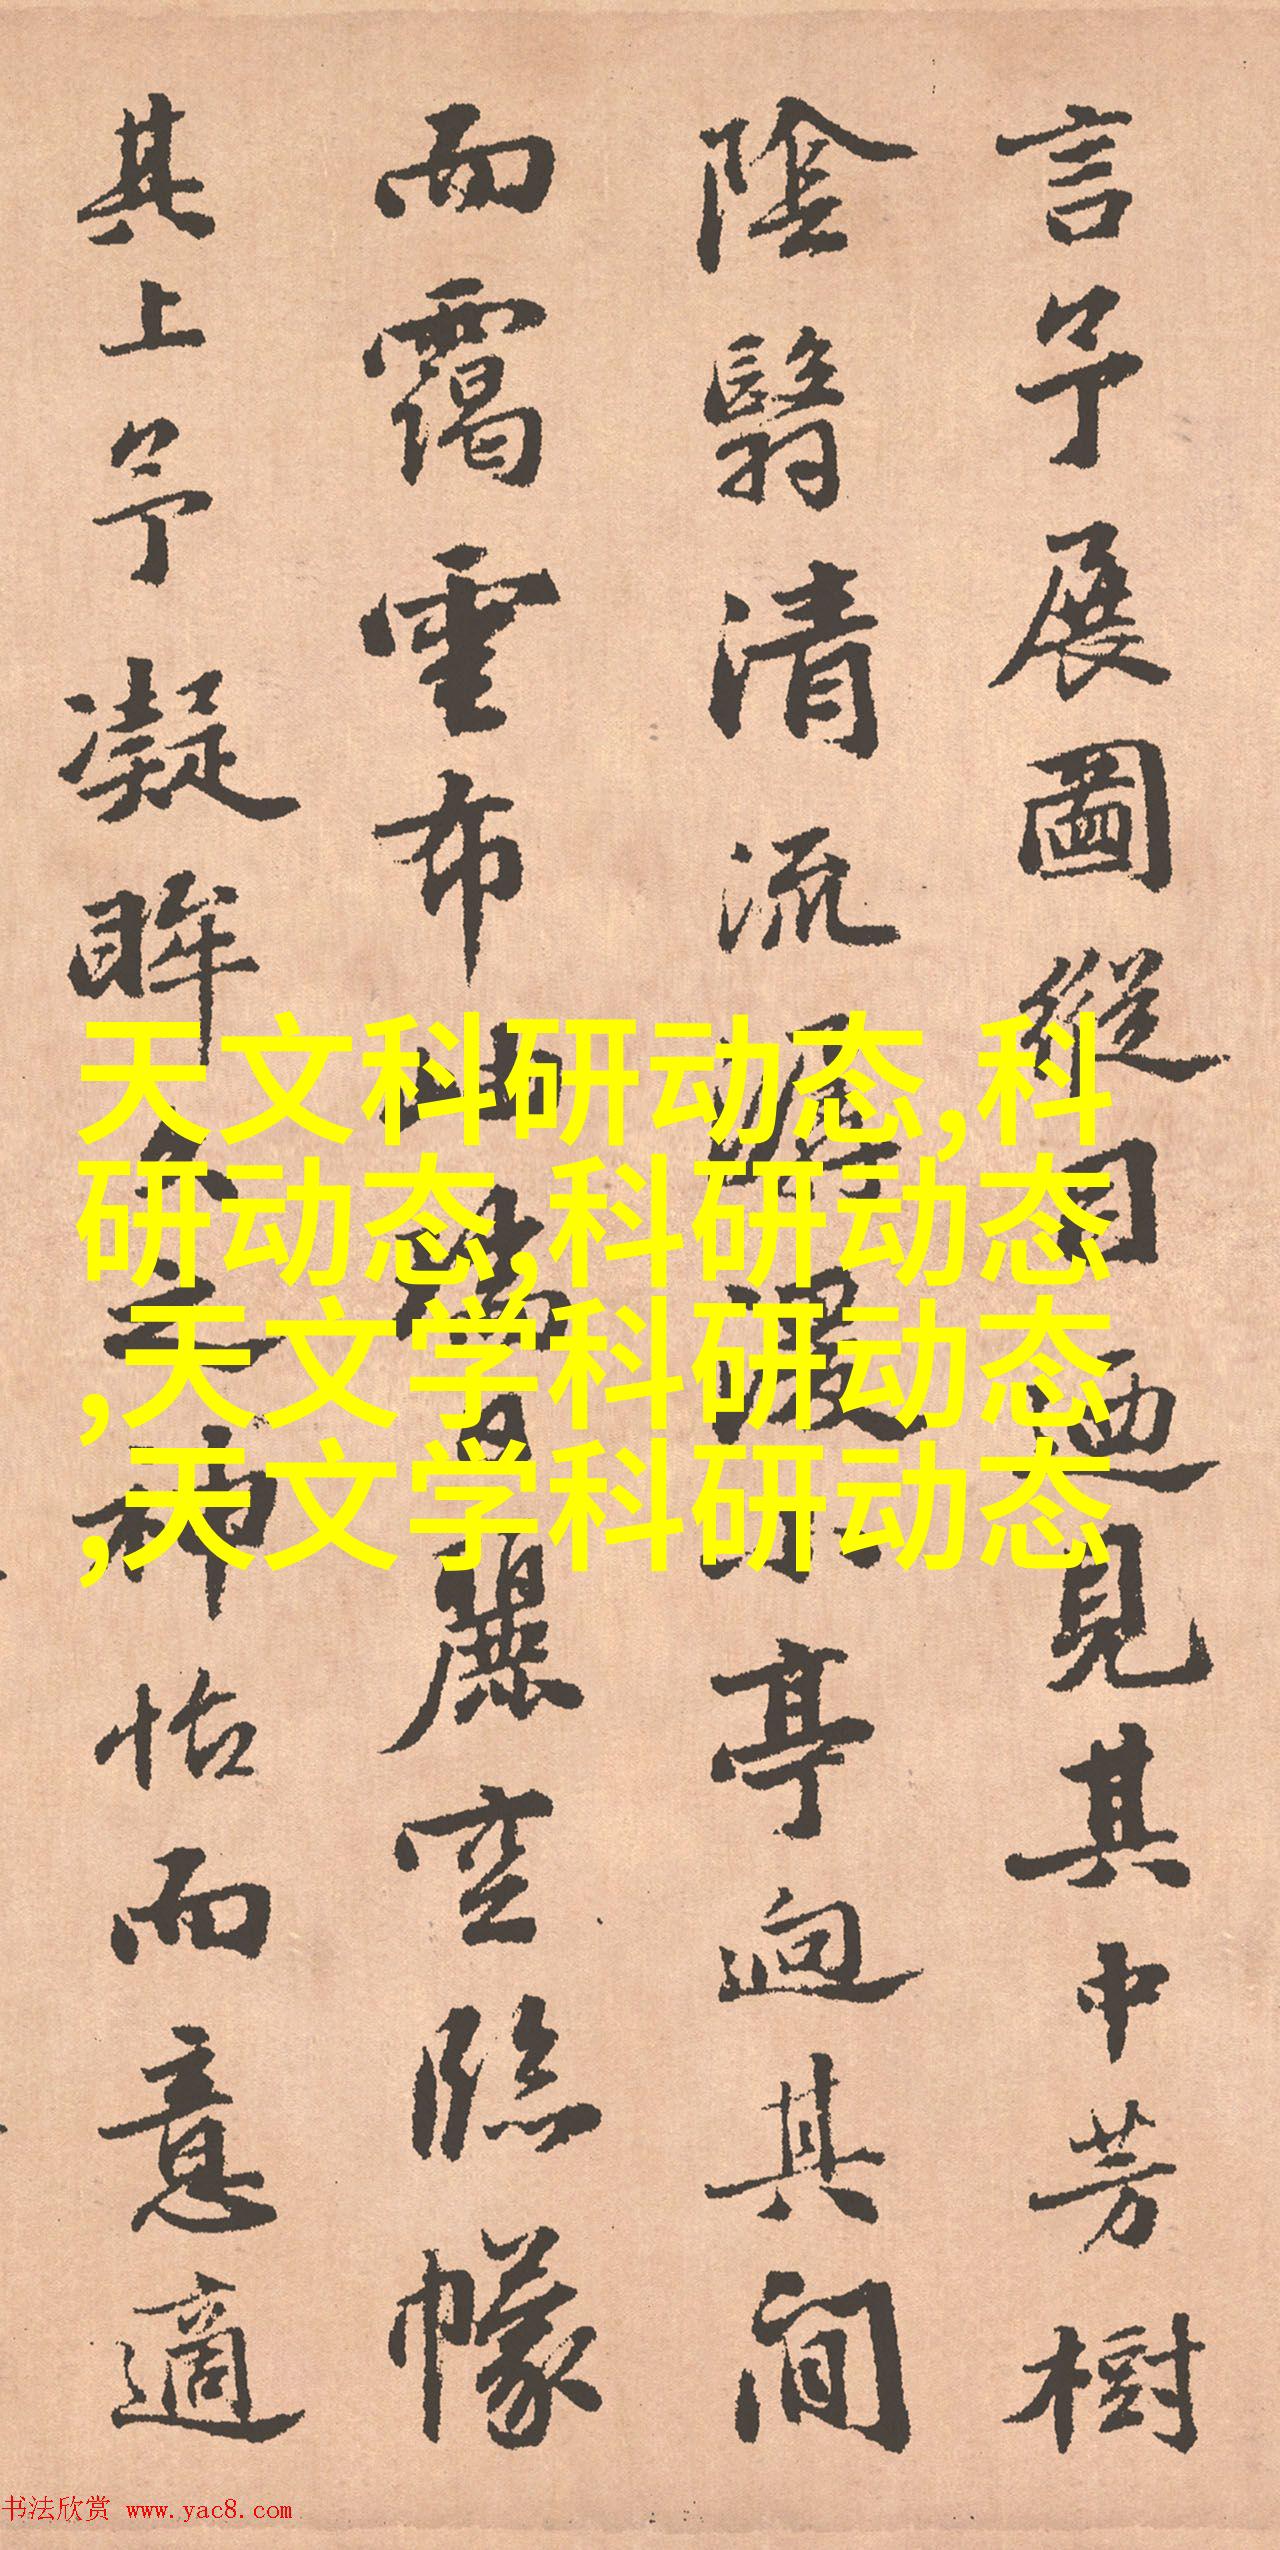 言予展圖縱目迺見其中芳樹
陰翳清流湲亭逈其間
而靄雲布麗空臨幪
其上予凝眸久之神怡而意適
天文科研动态,科
研动态,科研动态
,天文学科研动态
,天文学科研动态
书法欣赏 www.yac8.com